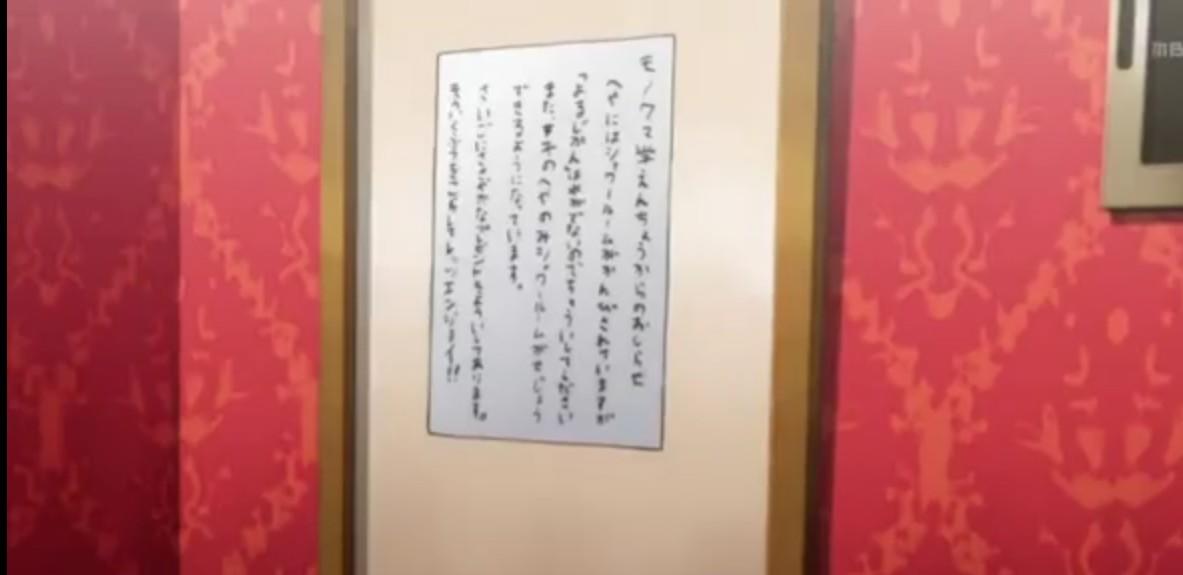 モノクマ学えんちょうからのおしらせ
へやにはシャワールームがかんびされていますが
「よるじかん」はでないのでちゅういしてください
また、女子のへやのみシャワールームがせじょう
できるようになっています。
さいごにささやかなプレゼントをよういしてあります。
エンジョイ!!
MB